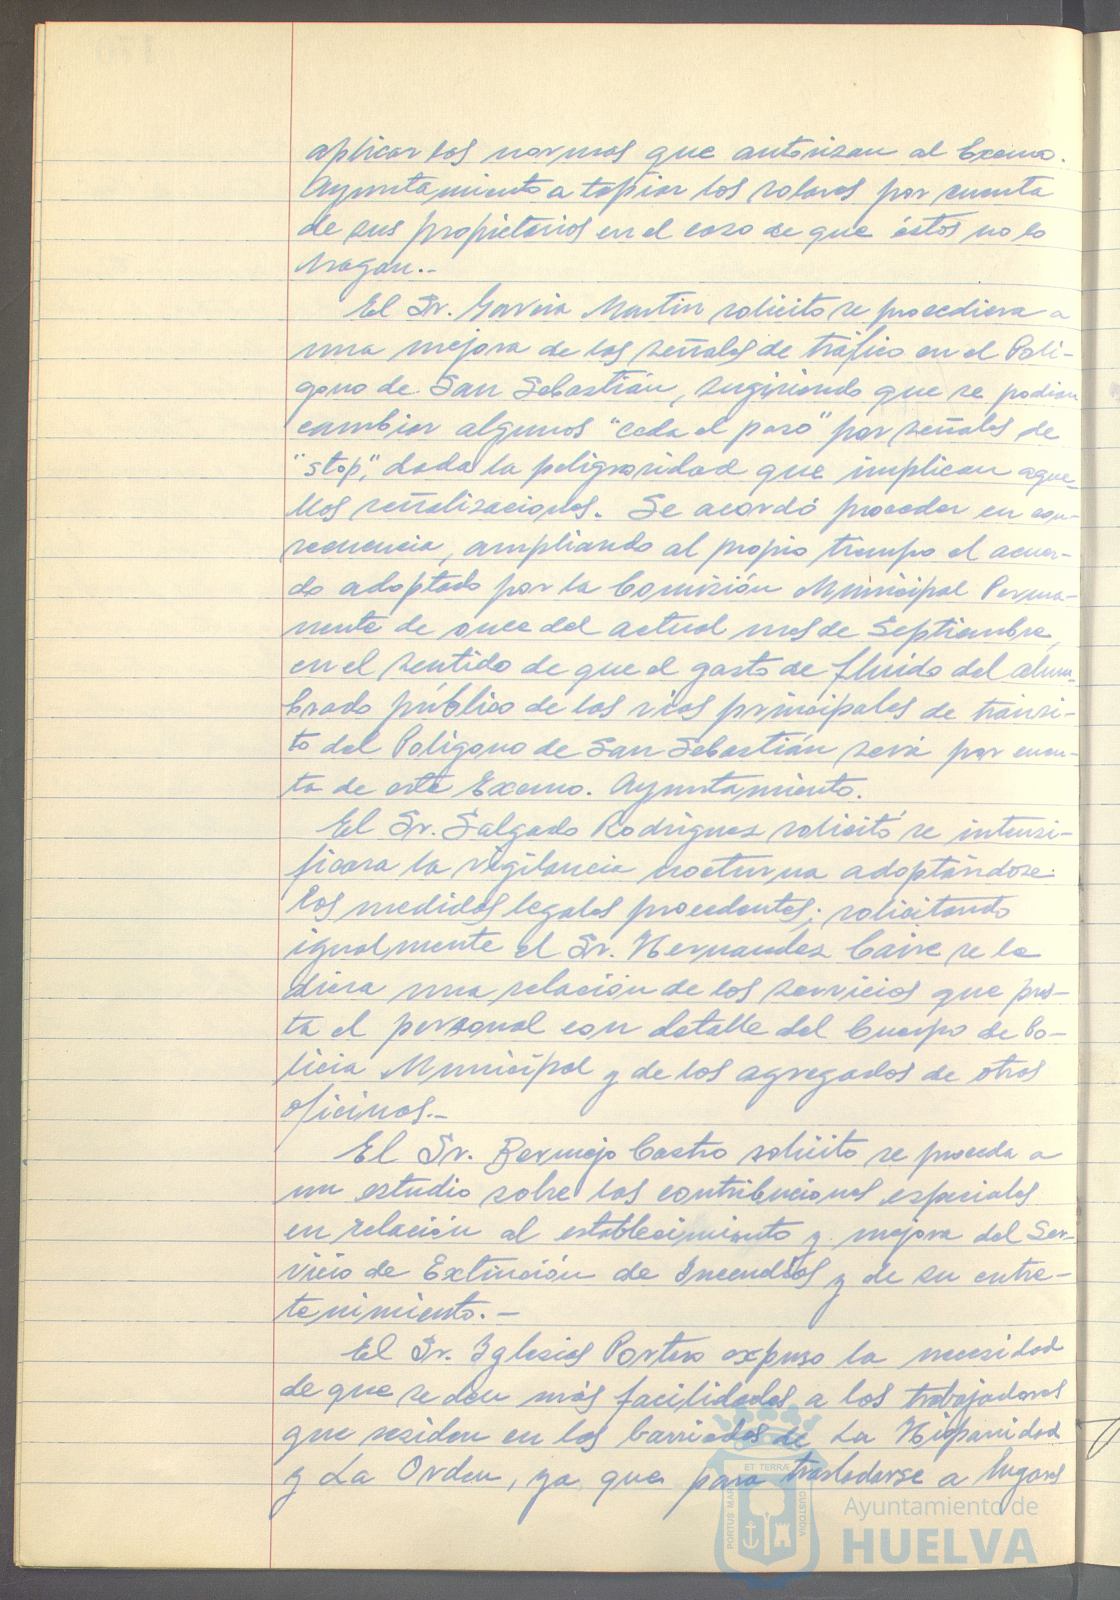 aplicar las normas que autorizan al Excmo.
Ayuntamiento a tapiar los solares por cuenta
de sus propietarios en el caso de que éstos no lo
hagan.-
El Sr. García Martín solicito se procediera a
una mejora de las señales de tráfico en el Polí-
gono de San Sebastián, sugiriendo que se podian
cambiar algunos "ceda el paso" por señales de
"stop", dada la peligrosidad que implican aque-
llas señalizaciones. Se acordó proceder en con-
secuencia, ampliando al propio tiempo el acuer-
do adoptado por la Comisión Municipal Perma-
nente de once del actual mes de Septiembre,
en el sentido de que el gasto de fluido del alum-
brado público de las vias principales de tránsi-
to del Polígono de San Sebastián será por cuen-
ta de este Excmo. Ayuntamiento.
El Sr. Salgado Rodriguez solicitó se intensi-
ficara la vigilancia nocturna adoptándose
las medidas legales procedentes; solicitando
igualmente el Sr. Hernandez Caire se le
diera una relación de los servicios que pres-
ta el personal con detalle del Cuerpo de Po-
licia Municipal y de los agregados de otras
oficinas.-
El Sr. Bermejo Castro solicito se proceda a
un estudio sobre las contribuciones especiales
en relación al establecimiento y mejora del Ser-
vicio de Extinción de Incendios y de su entre-
tenimiento.-
El Sr. Iglesias Portero expuso la necesidad
de que se den más facilidades a los trabajadores
que residen en las barriadas de La Hispanidad
y La Orden, ya que para trasladarse a lugares
ET TERRAE
PORTUS MARIS
CUSTODIA
Ayuntamiento de
HUELVA